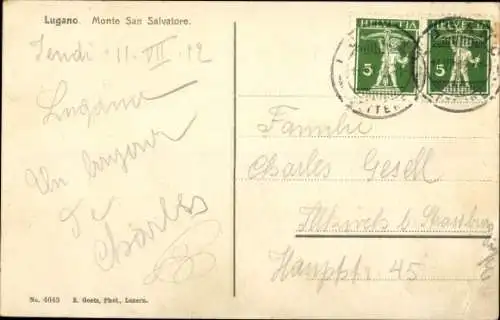 Lugano. Monte San Salvatore.
11. VII 12
HELVETIA HELVETIA
5 5
Lugano
Un bonjour
Charles
Familie
Charles Gesell
b. Strassburg
Hauptstr. 45
No. 4643 E. Goetz, Phot., Luzern.